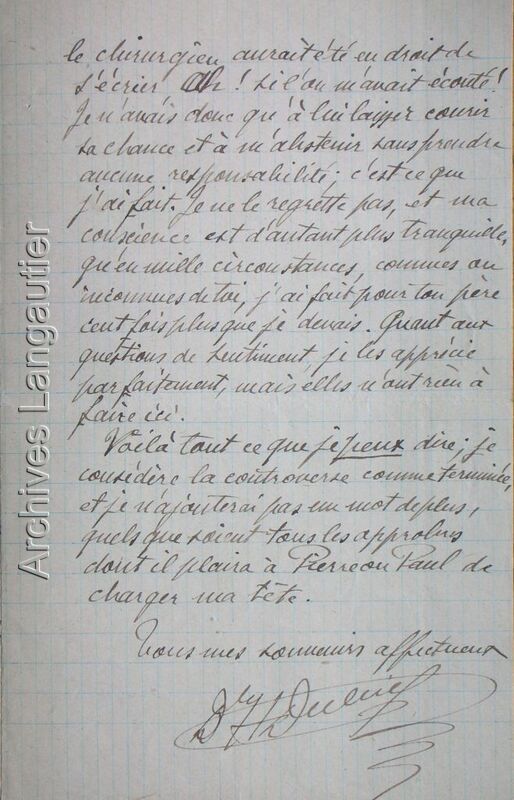 le chirurgien aurait été en droit de
s'écrier Ah ! si l'on m'avait écouté !
Je n'avais donc qu'à lui laisser courir
sa chance et à m'abstenir sans prendre
aucune responsabilité ; c'est ce que
j'ai fait. Je ne le regrette pas, et ma
conscience est d'autant plus tranquille,
qu'en mille circonstances, connues ou
inconnues de toi, j'ai fait pour ton père
cent fois plus que je devais. Quant aux
questions de sentiment, je les apprécie
parfaitement, mais elles n'ont rien à
faire ici.
Voilà tout ce que je peux dire ; je
considère la controverse comme terminée,
et je n'ajouterai pas un mot de plus,
quels que soient tous les
dont il plaira à Pierre ou Paul de
charger ma tête.
Tous mes souvenirs affectueux
Dr
Archives Langautier